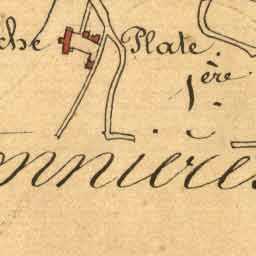 che Plate
1ère
onnières